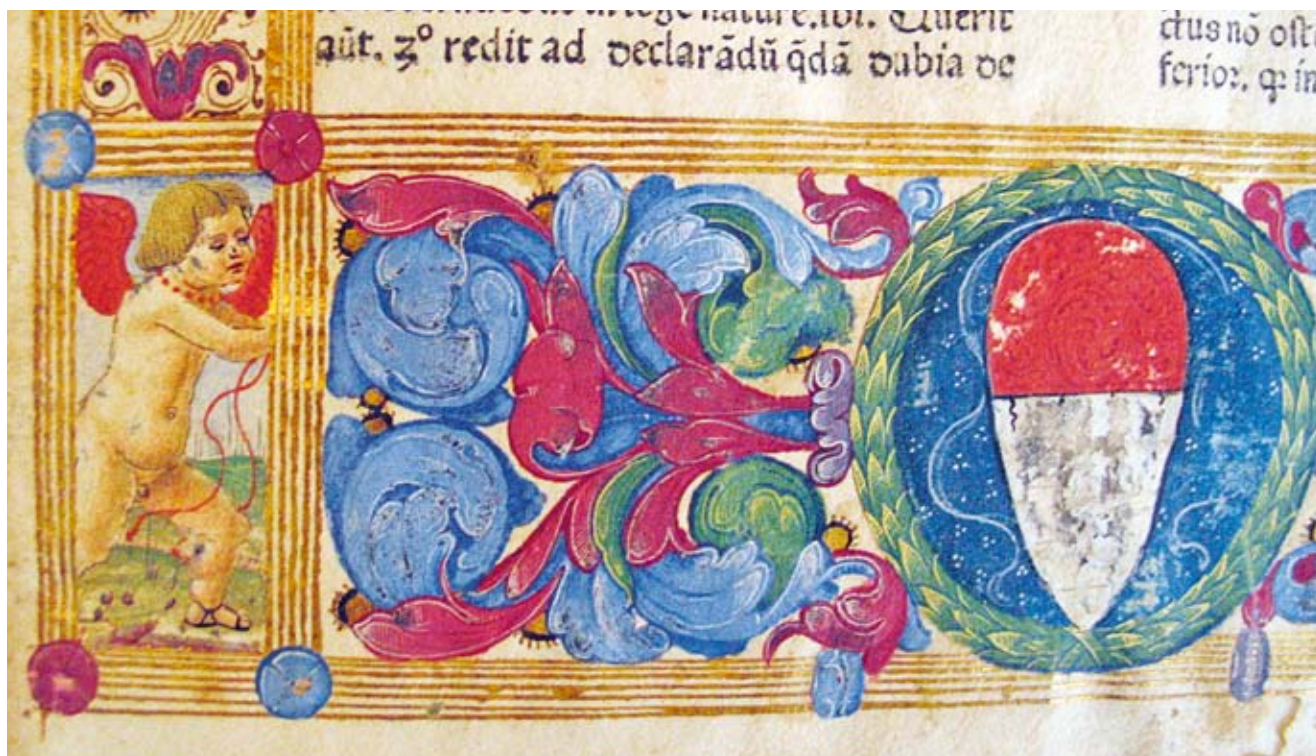 nature.ibi. Querit
aūt. ʒº redit ad declarādū q̄dā dubia de
ctus nō oste
ferior. qꝛ in